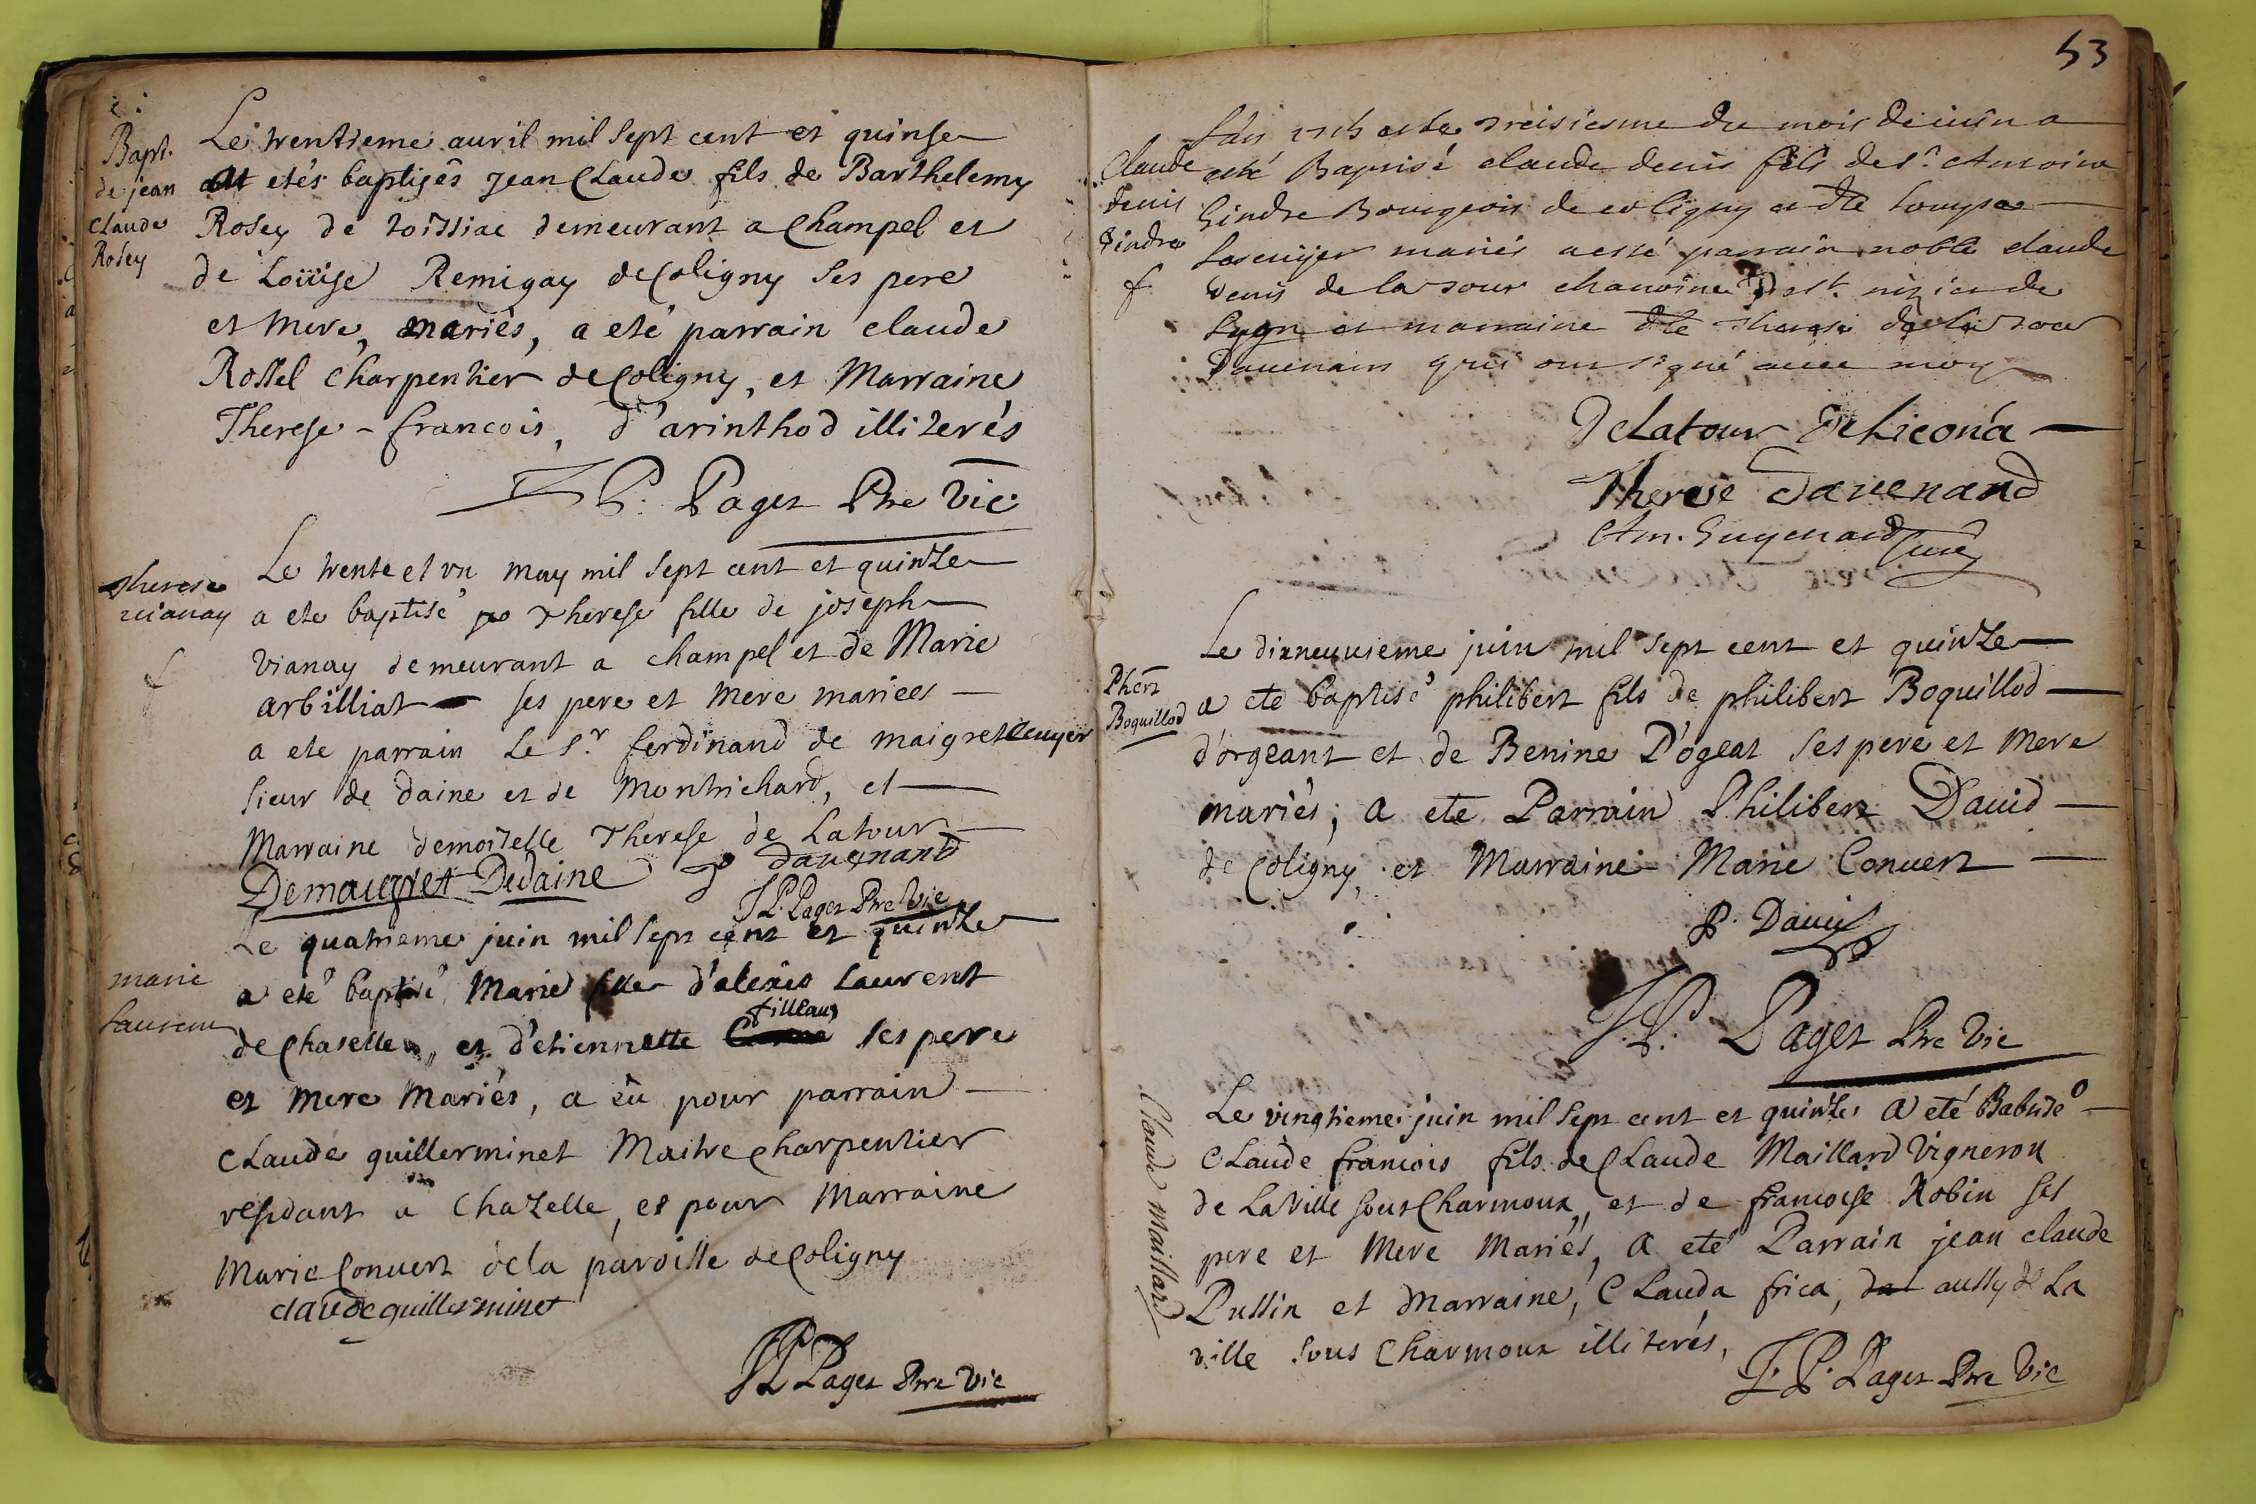 Bapt.
de jean
Claude
Rosey
Le trentieme auril mil sept cent et quinse
etés baptisés jean Claude fils de Barthelemy
Rosey de toissiac demeurant a Champel et
de Loüise Remigay de Coligny ses pere
et mere, mariés, a eté parrain claude
Rossel charpentier de Coligny, et Marraine
Therese - francois, d'arinthod illiterés
J P. Paget Ptre Vic
Therese
vianay
f
Le trente et vn may mil sept cent et quinze
a ete baptisé Therese fille de joseph
vianay demeurant a champel et de Marie
arbilliat ses pere et mere mariees
a ete parrain Le Sr. ferdinand de maigret ecuyer
sieur de daine et de Montrichard, et
Marraine demoiselle Therese de Latour
Demaugret Dedaine T dauenand
J P. Paget Ptre Vic
marie
Laurent
Le quatrieme juin mil sept cent et quinze
a eté baptisé Marie fille d'alexis Laurent
de Chaselle, et d'etiennette tilleaux ses pere
et mere Mariés, a eû pour parrain
Claude guillerminet Maitre Charpentier
residant a Chazelle, et pour Marraine
Marie Conuert de la paroisse de Coligny
claude guillerminet
J P Paget Ptre Vic
53
Claude
denis
Gindre
f
Lan 1715 et le treisiesme du mois de iuin a
esté Baptisé claude denis fils de sr. Antoine
Gindre Bourgeois de coligny et dlle Louyse
mariés a esté parrain noble claude
denis de la tour chanoine de st. nizier de
Lyon et marraine dlle therese de la tour
Dauenans qui ont signé auec moy
DeLatour
Therese Dauenand
Am. Guyenard Curé
Phert
Boquillod
Le dixneuuieme juin mil sept cent et quinze
a eté baptisé philibert fils de philibert Boquillod
d'orgeant et de Benine D'ogeat ses pere et Mere
mariés, a ete Parrain Philibert Dauid
de Coligny, et Marraine Marie Conuert
P. Dauid
J. P. Paget Ptre Vic
Claude Maillard
Le vingtieme juin mil sept cent et quinze a eté Babtisé
Claude francois fils de Claude Maillard Vigneron
de La Ville sous Charmoux, et de francoise Robin ses
pere et Mere Mariés, a eté Parrain jean claude
Pussin et Marraine, Clauda frica, aussy de La
ville sous Charmoux illiterés,
J. P. Paget Ptre Vic